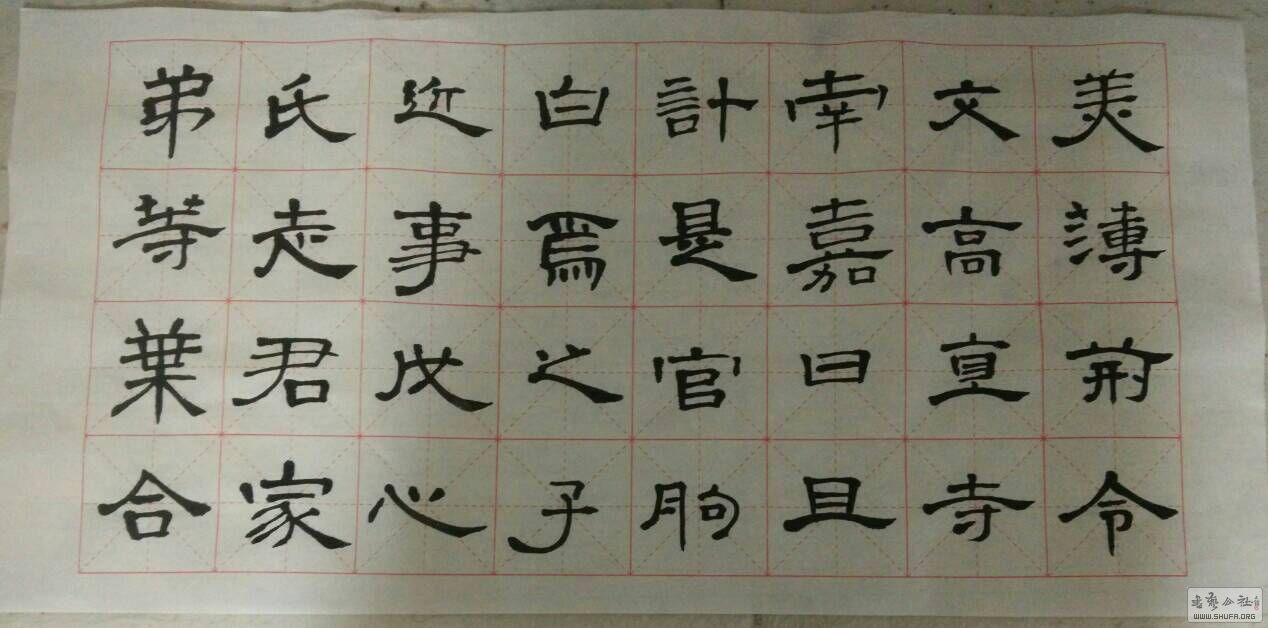 美溥荊令
文高亶寺
南嘉曰且
計是官朐
白焉之子
近事戊心
氏走君家
弟等葉合
书艺公社
WWW.SHUFA.ORG